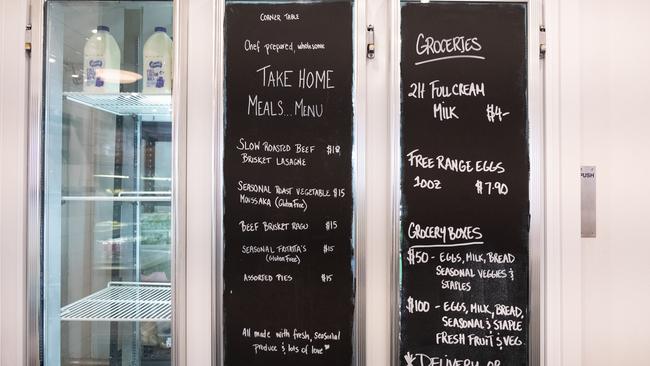 CORNER TABLE
Chef prepared, wholesome
TAKE HOME
MEALS...MENU
SLOW ROASTED BEEF $18
BRISKET LASAGNE
SEASONAL ROAST VEGETABLE $15
MOISSAKA (Gluten Free)
BEEF BRISKET RAGU $15
SEASONAL FRITATTA'S $15
(Gluten Free)
ASSORTED PIES $15
All made with fresh, seasonal
produce & lots of love
GROCERIES
2LT FULL CREAM
MILK $4-
FREE RANGE EGGS
10OZ $7.90
GROCERY BOXES
$50 - EGGS, MILK, BREAD
SEASONAL VEGGIES &
STAPLES
$100 - EGGS, MILK, BREAD,
SEASONAL & STAPLE
FRESH FRUIT & VEG
* DELIVERY OR
PUSH